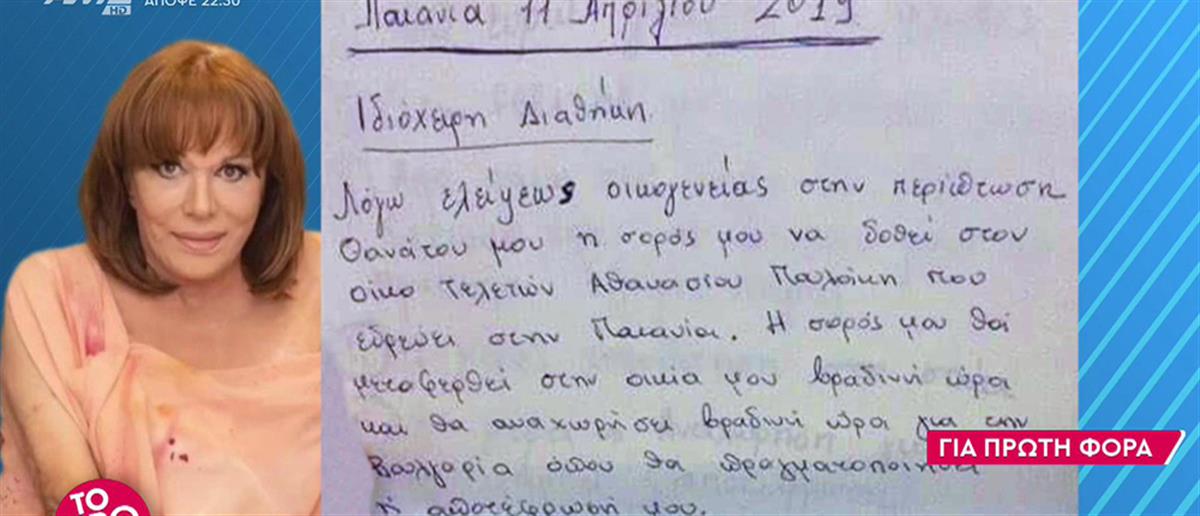 HD ΑΠΟΨΕ 22:30
Παιανία 11 Απριλίου 2019
Ιδιόχειρη Διαθήκη
Λόγω ελείψεως οικογενείας στην περίπτωση
θανάτου μου η σορός μου να δοθεί στον
οίκο τελετών Αθανασίου Παλοίκη που
εδρεύει στην Παιανία. Η σορός μου θα
μεταφερθεί στην οικία μου βραδινή ώρα
και θα αναχωρήσει βραδινή ώρα για την
ΓΙΑ ΠΡΩΤΗ ΦΟΡΑ
Βουλγαρία όπου θα πραγματοποιηθεί
η αποτέφρωσή μου.
ΤΟ